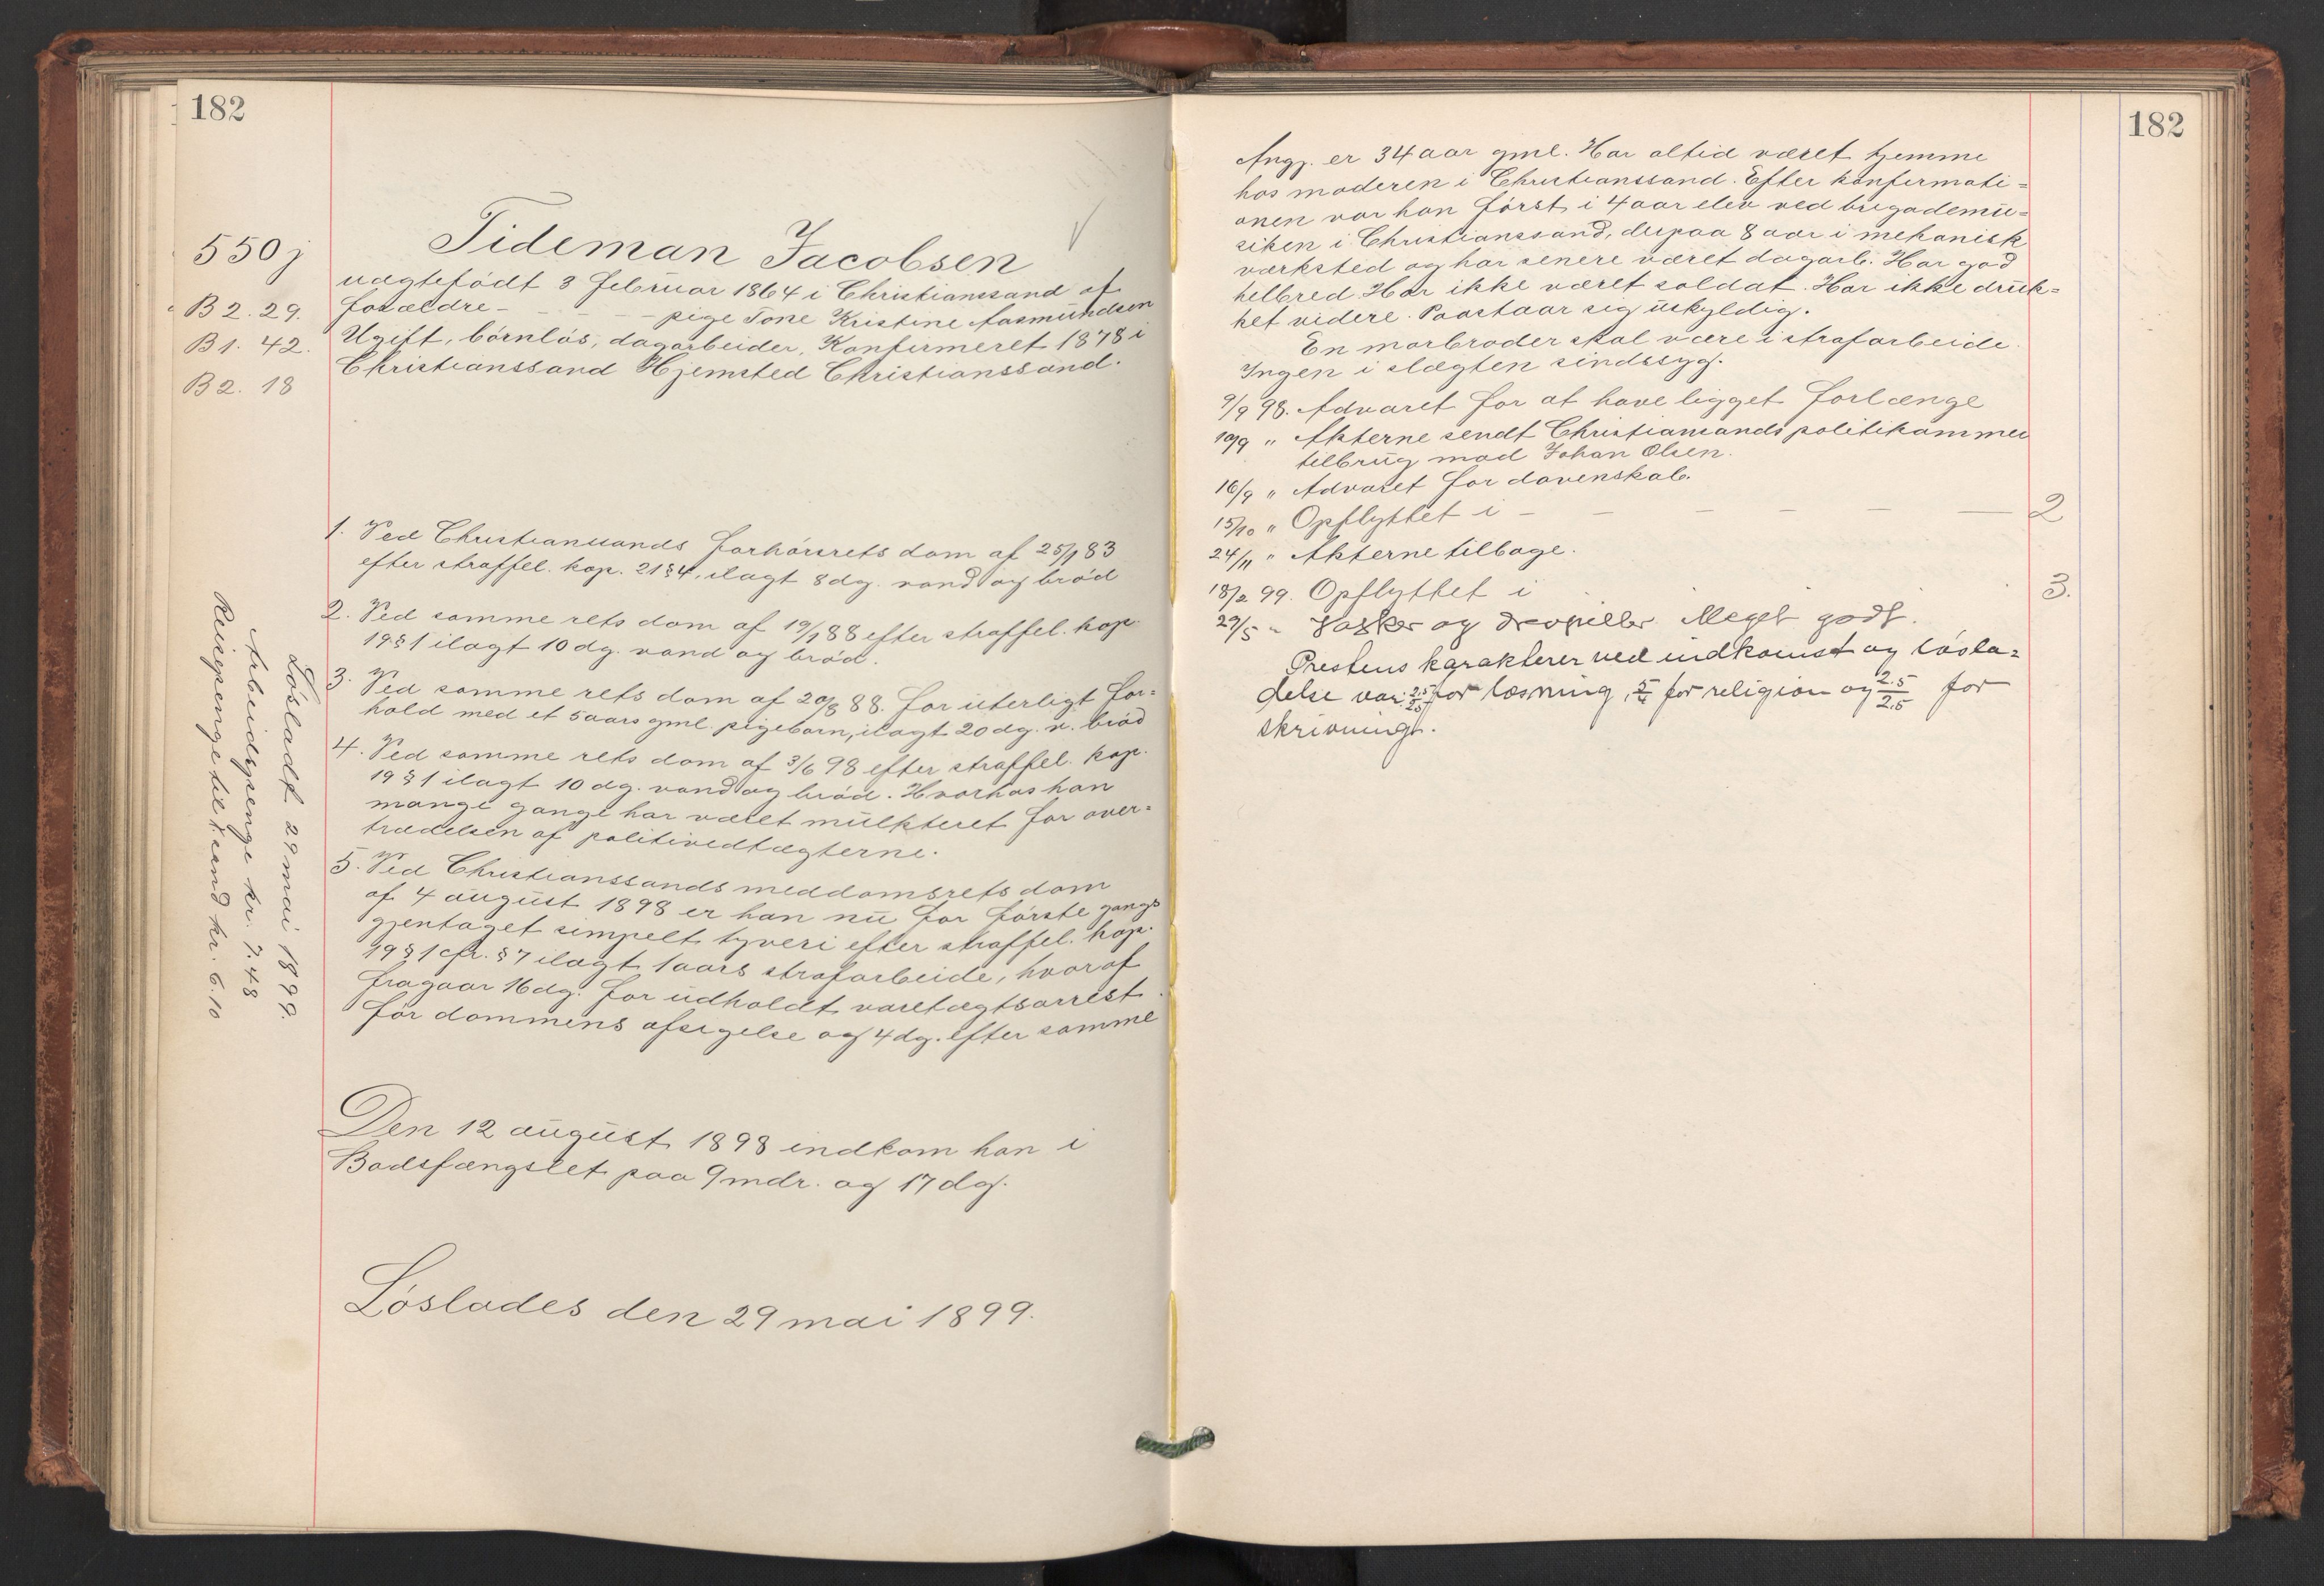 182
550j
B 2. 29.
B 1. 42.
B 2. 18
Tideman Jacobsen
uægtefödt 3 februar 1864 i Christianssand af
forældre - - - - pige Tone Kristine Aasmundsen
Ugift, börnlös, dagarbeider, Konfirmeret 1878 i
Christianssand Hjemsted Christianssand.
1. Ved Christianssands forhörsrets dom af 25/1 83
efter straffel. kap. 21 § 4, ilagt 8 dg. vand og bröd
2. Ved samme rets dom af 19/1 88 efter straffel. kap.
19 § 1 ilagt 10 dg. vand og bröd.
3. Ved samme rets dom af 20/8 88. for üterligt for=
hold med et 5 aars gml. pigebarn, ilagt 20 dg. v. bröd
4. Ved samme rets dom af 3/6 98 efter straffel. kap.
19 § 1 ilagt 10 dg. vand og bröd. Hvorhos han
mange gange har været mülkteret for over=
trædelsen af politivedtægterne.
5. Ved Christianssands meddomsrets dom
af 4 august 1898 er han nü for förste gangs
gjentaget simpelt tyveri efter straffel. kap.
19 § 1 cfr. § 7 ilagt 1 aars strafarbeide, hvoraf
fragaar 16 dg. for üdholdt varetægtsarrest
för dommens afsigelse og 4 dg. efter samme
Den 12 august 1898 indkom han i
Bodsfængslet paa 9 mdr. og 17 dg.
Löslades den 29 mai 1899.
Lösladt 29 mai 1899.
Arbeidspenge kr. 7.48
Reisepenge til K.sand kr. 6.10
182
Angj. er 34 aar gml. Har altid været hjemme
hos moderen i Christianssand. Efter konfirmati=
onen var han först i 4 aar elev ved brigademü=
siken i Christianssand, derpaa 8 aar i mekanisk
værksted og har senere været dagarb. Har god
helbred. Har ikke været soldat. Har ikke druk=
ket videre. Paastaar sig üskyldig.
En morbroder skal være i strafarbeide.
Ingen i slægten sindssyg.
9/9 98. Advaret for at have ligget forlænge
10/9 " Akterne sendt Christianssands politikammer
tilbrüg mod Johan Olsen.
16/9 " Advaret for dovenskab.
15/10 " Opflyttet i - - - - - - 2
24/11 " Akterne tilbage.
18/2 99. Opflyttet i 3.
29/5 " Vasker og drevpiller. Meget godt.
Prestens karakterer ved indkomst og lösla=
delse var: 2.5/2.5 for læsning, 5/4 for religion og 2.5/2.5 for
skrivning.